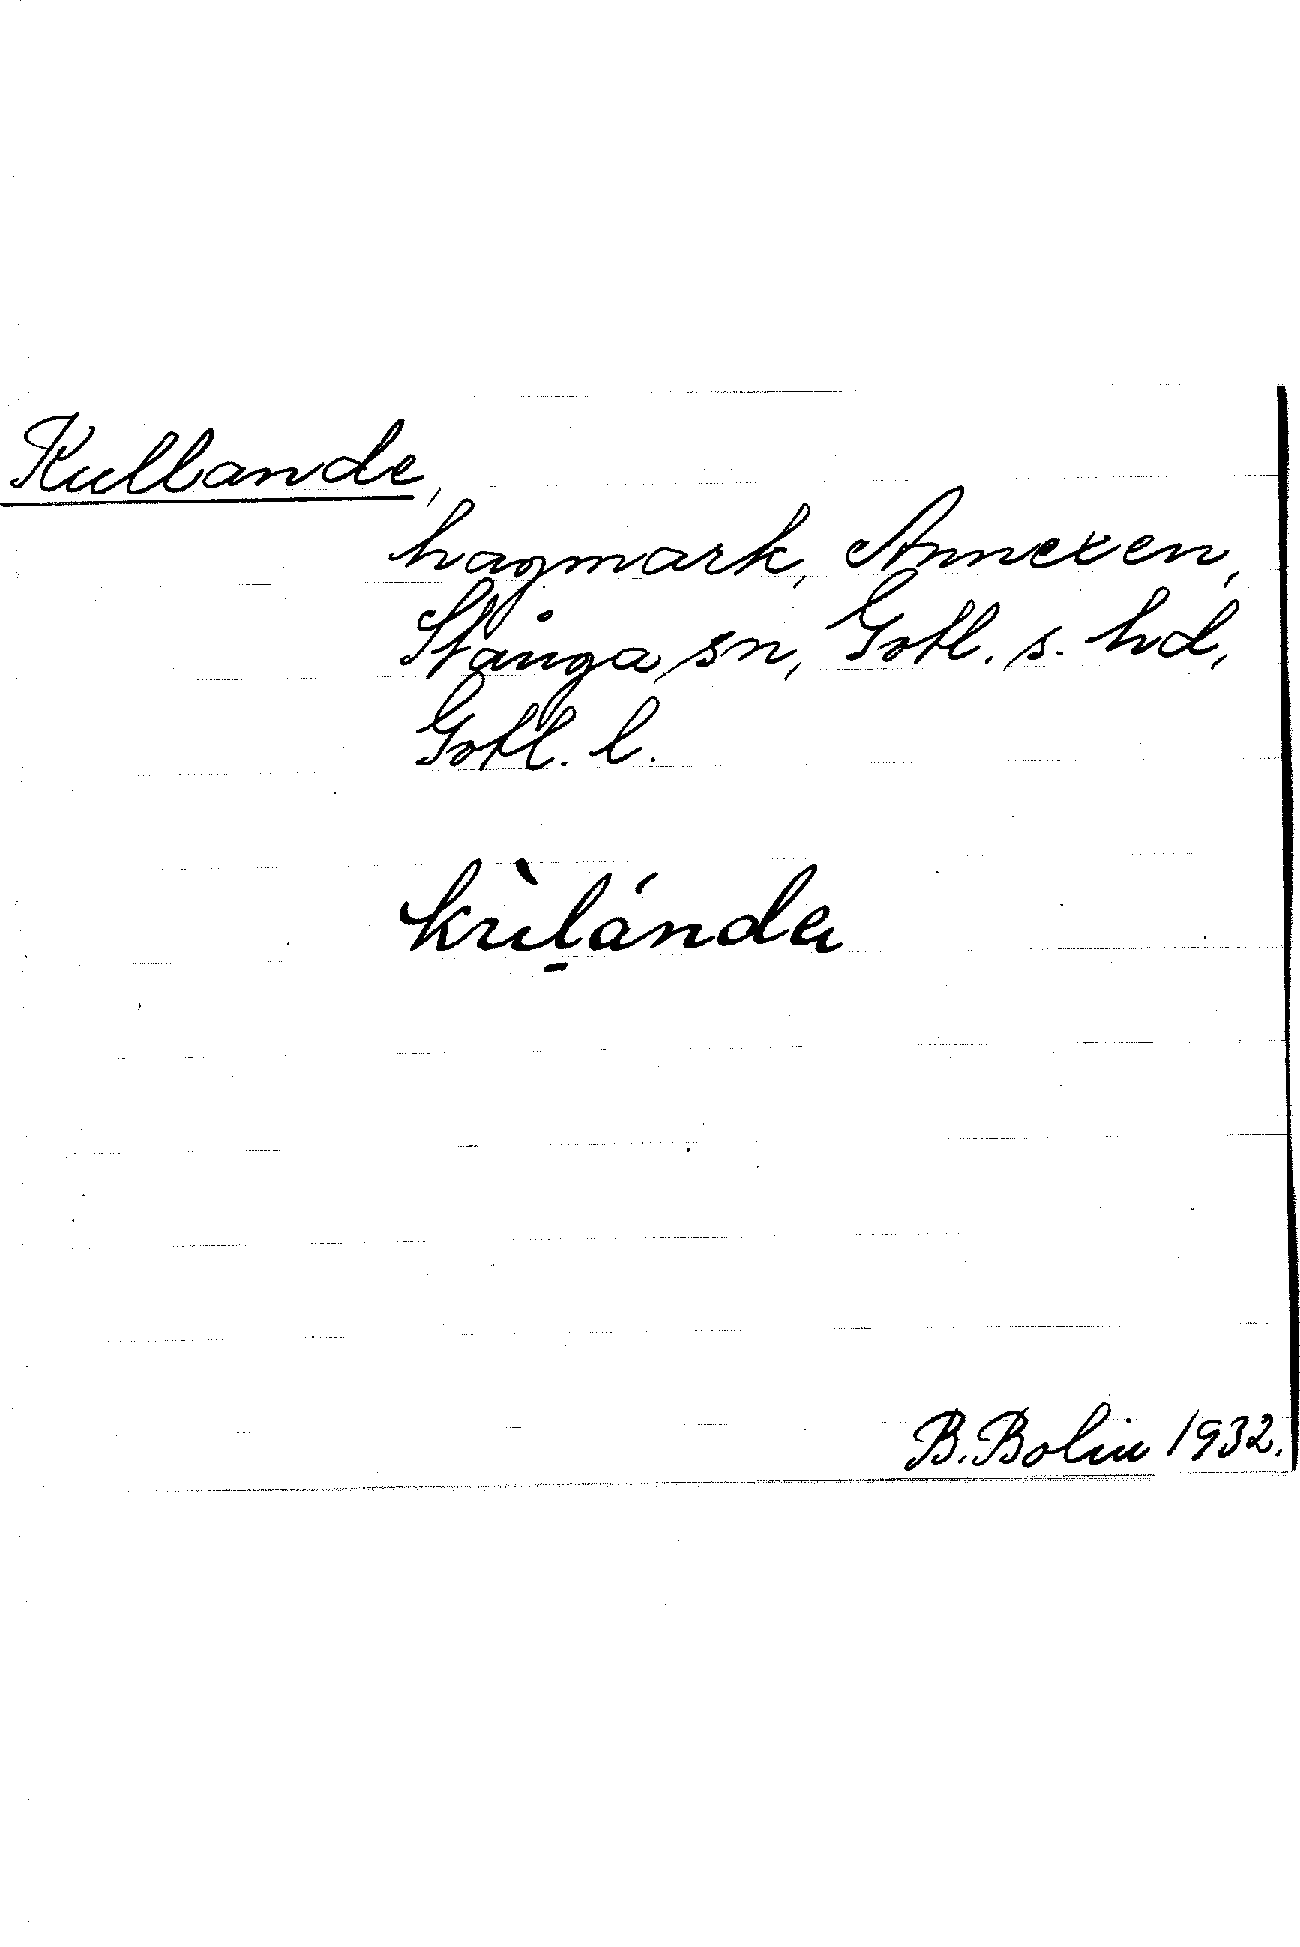 Kullande,
hagmark, Annexen,
Stånga sn, Gotl. s. hd,
Gotl. l.
kùḷánda
B. Bolin 1932.